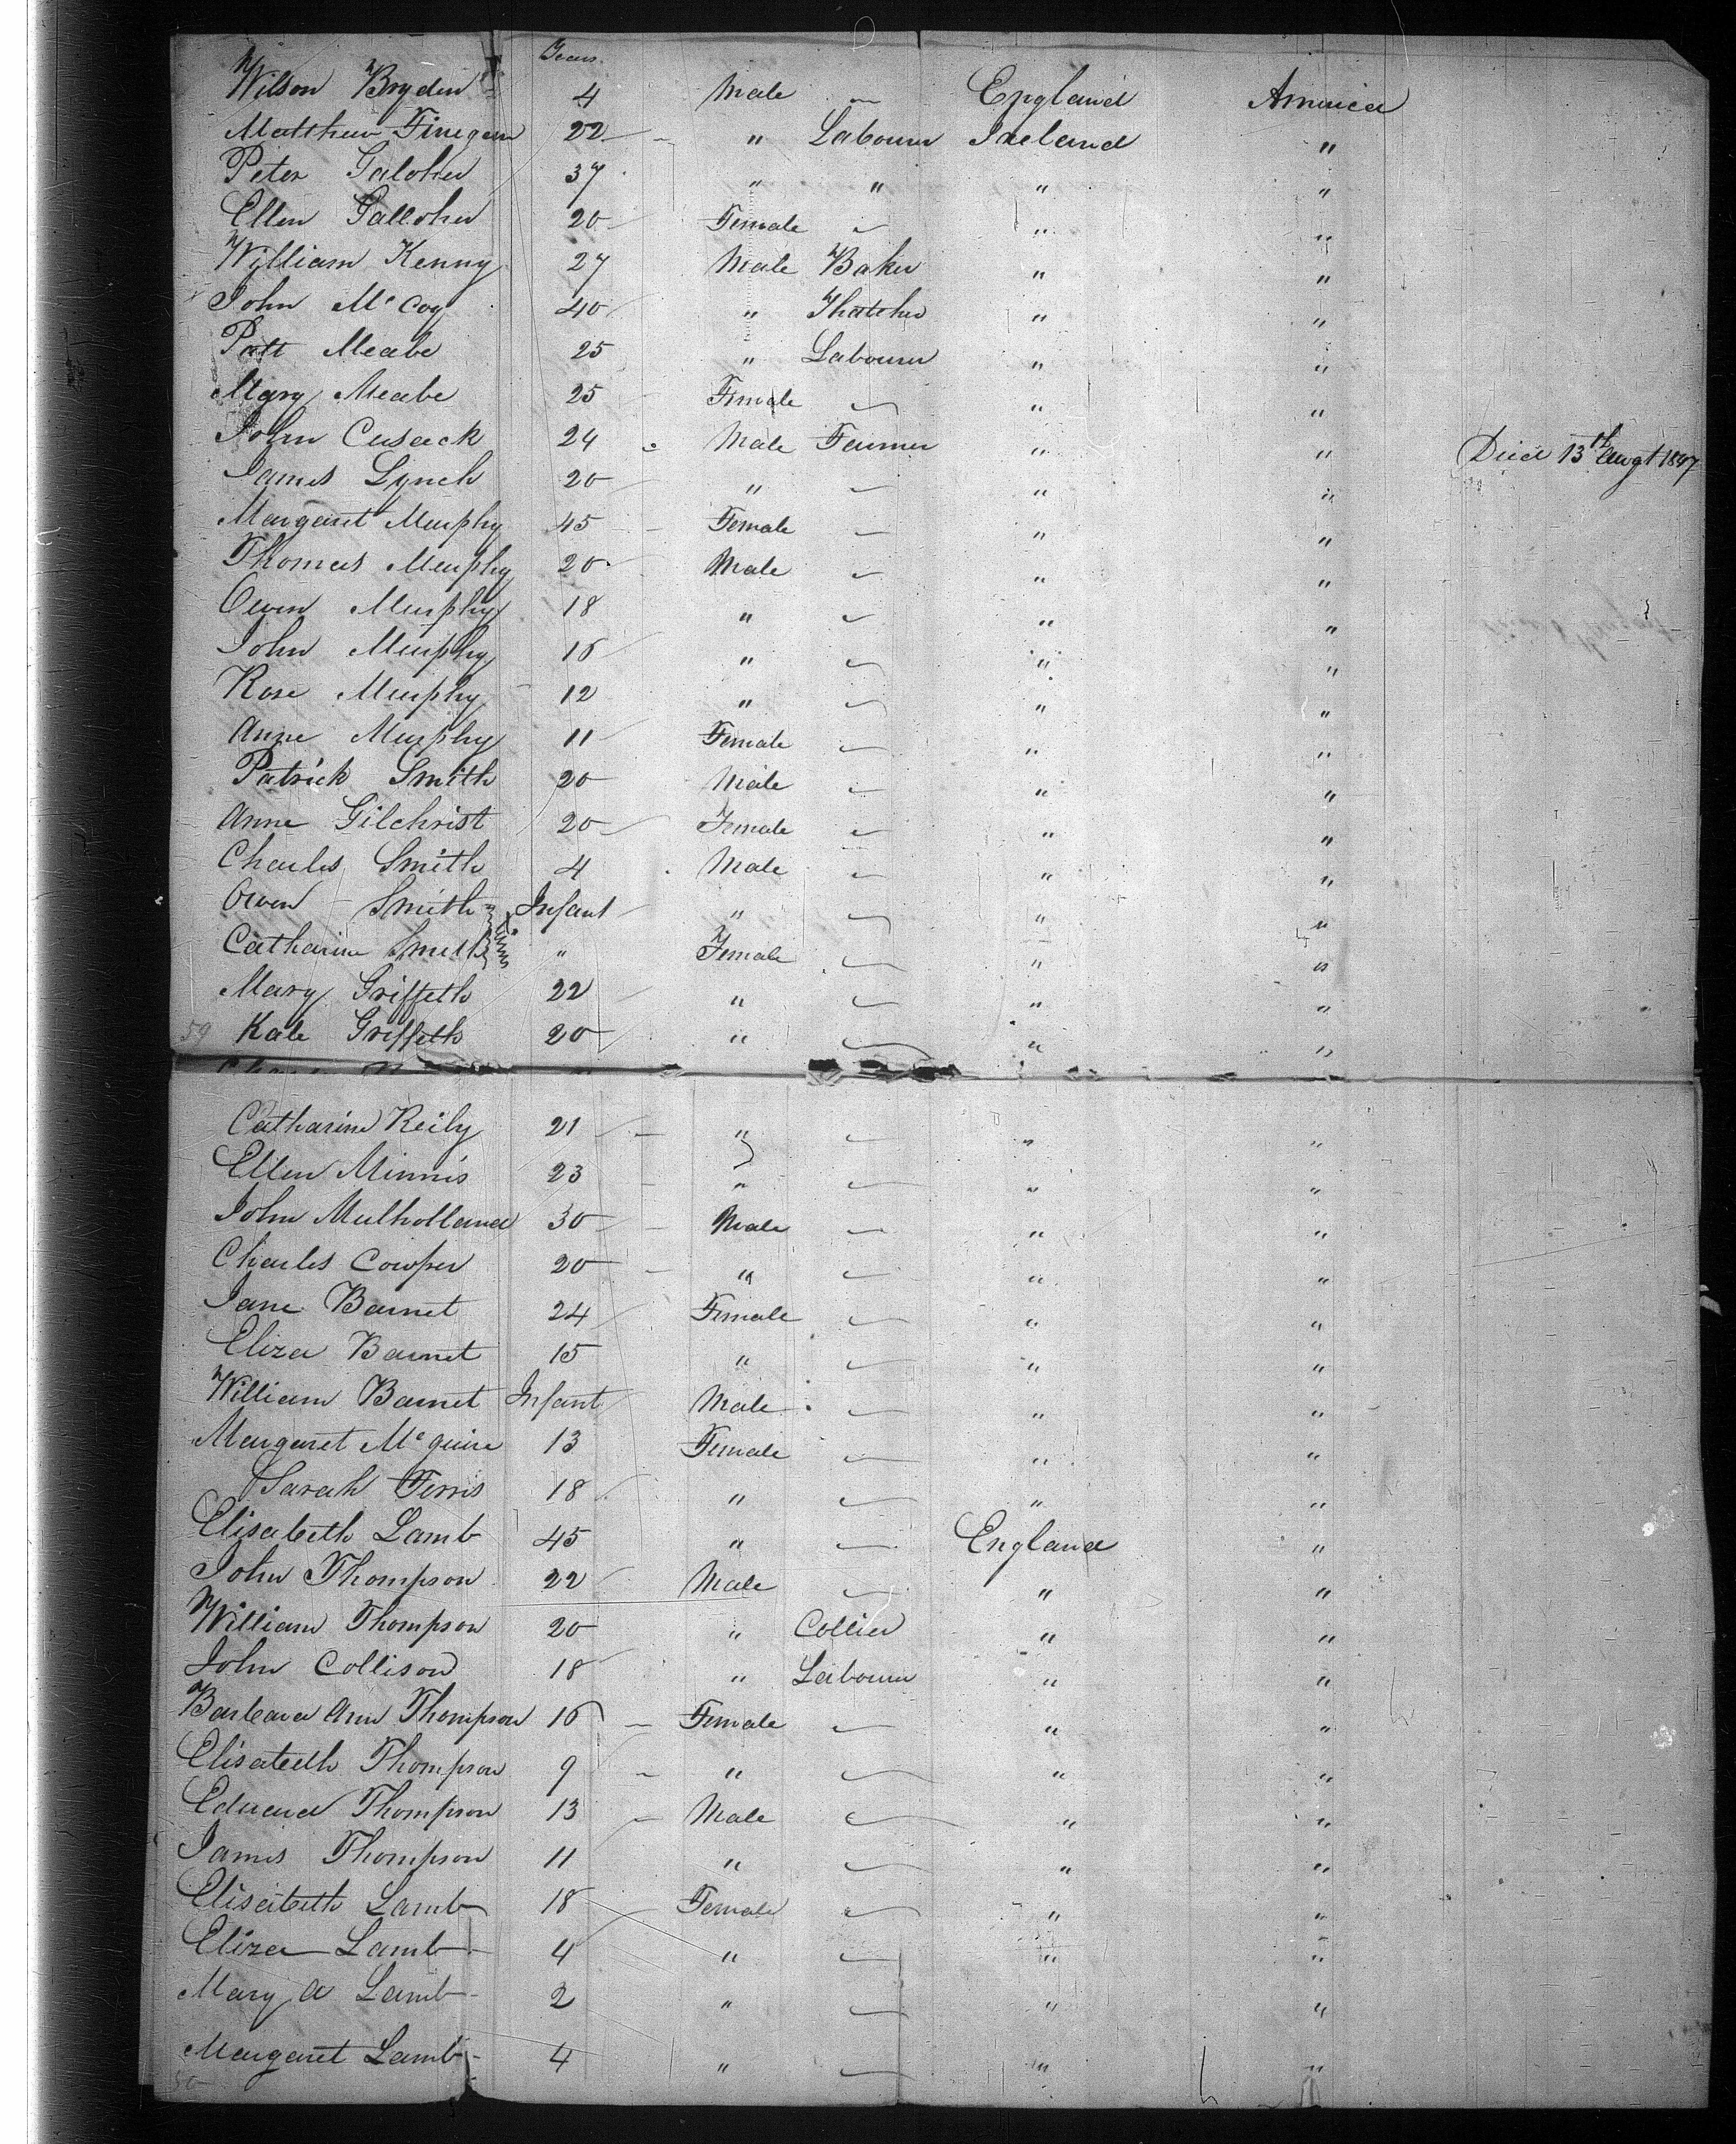 Years.
Wilson Bryden 4 Male — England America
Matthew Finegan 22 " Labourer Ireland "
Peter Galoher 37 " " " "
Ellen Galloher 20 Female — " "
William Kenny 27 Male Baker " "
John McCoy 40 " Thatcher " "
Patt Meabe 25 " Labourer " "
Mary Meabe 25 Female — " "
John Cusack 24 Male Farmer " " Died 13th Augt 1847
James Lynch 20 " — " "
Margaret Murphy 45 Female — " "
Thomas Murphy 20 Male — " "
Owen Murphy 18 " — " "
John Murphy 16 " — " "
Rose Murphy 12 " — " "
Anne Murphy 11 Female — " "
Patrick Smith 20 Male — " "
Anne Gilchrist 20 Female — " "
Charles Smith 4 Male — " "
Owen Smith Infant " — " "
Catharine Smith " Female — " "
Mary Griffeth 22 " — " "
59 Kate Griffeth 20 " — " "
Catharine Reily 21 " — " "
Ellen Minnis 23 " — " "
John Mulholland 30 Male — " "
Charles Cowper 20 " — " "
Jane Barnet 24 Female — " "
Eliza Barnet 15 " — " "
William Barnet Infant Male — " "
Margaret McGuire 13 Female — " "
Sarah Ferris 18 " — " "
Elisabeth Lamb 45 " — England "
John Thompson 22 Male — " "
William Thompson 20 " Collier " "
John Collison 18 " Labourer " "
Barbara Ann Thompson 16 Female — " "
Elisabeth Thompson 9 " — " "
Edward Thompson 13 Male — " "
James Thompson 11 " — " "
Elisabeth Lamb 18 Female — " "
Eliza Lamb 4 " — " "
Mary A Lamb 2 " — " "
Margaret Lamb 4 " — " "